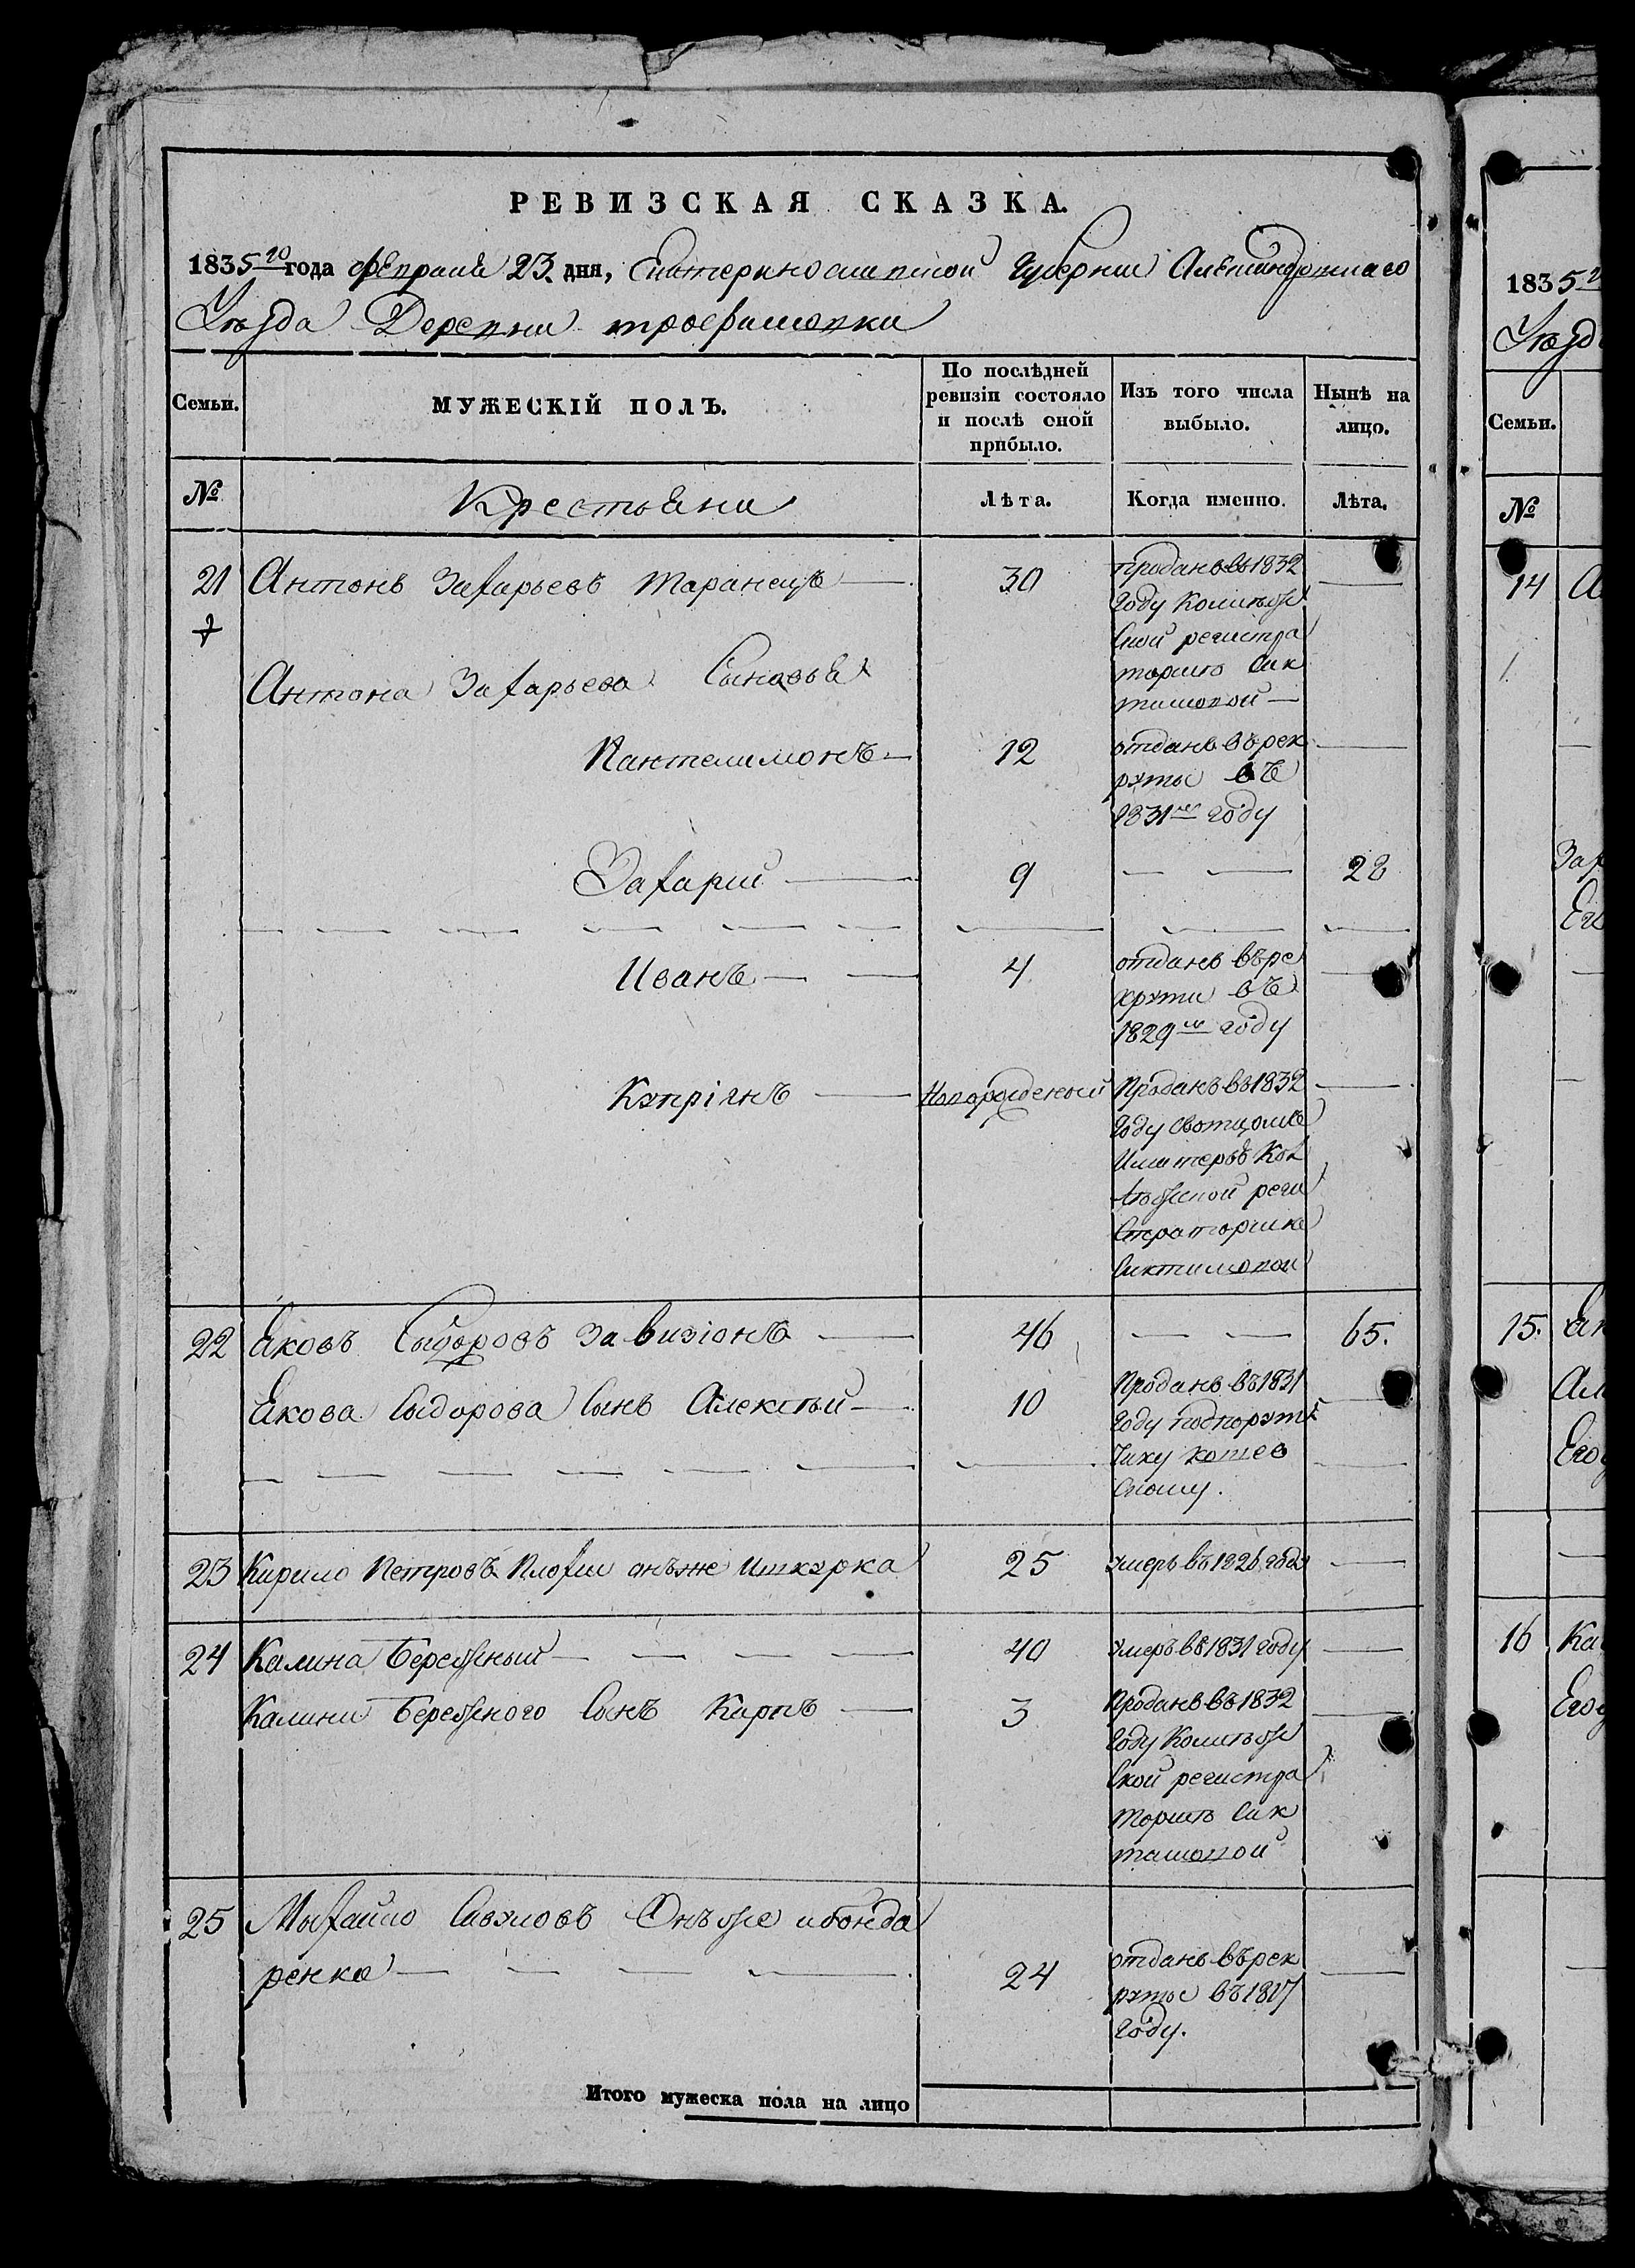 РЕВИЗСКАЯ СКАЗКА.
1835го года февраля 23 дня, Екатеринославской Губернии Александровскаго
Уезда Деревни трофимовки
Семьи.
МУЖЕСКІЙ ПОЛЪ.
По послѣдней
ревизіи состояло
и послѣ оной
прибыло.
Изъ того числа
выбыло.
Нынѣ на
лицо.
№
Крестьяни
Лѣта.
Когда именно.
Лѣта.
21 Антонъ Захарьевъ Таранецъ 30
проданъ въ 1832
году Колѣж
ской регистра
торшѣ
Антона Захарьева Сыновья
Пантелимонъ 12
отданъ въ рек
руты въ
1831м году
Захарий 9 28
Иванъ 4
отданъ въ ре
круты въ
1829м году
Купріянъ Новорожденый
Проданъ въ 1832
году со отцомъ
И матерью Кол
лѣжской реги
страторшѣ
22 Яковъ Сыдоровъ Завизіонъ 46 65.
Якова Сыдорова Сынъ Алексѣй 10
Проданъ въ 1831
году подпорут
чику
скому.
23 Кирило Петровъ онъже Шкурка 25 умеръ въ 1826 году
24 Калина Бережный 40 умеръ въ 1831 году
Калини Бережного Сынъ Карпъ 3
Проданъ въ 1832
году Колѣж
ской регистра
торшѣ
25 Мыхайло Савуловъ Онъже ибонда
ренко 24
отданъ въ рек
руты въ 1817
году.
Итого мужеска пола на лицо
1835
Уезд
Семьи.
№
14
Зах
Его
15.
Его
16
Его